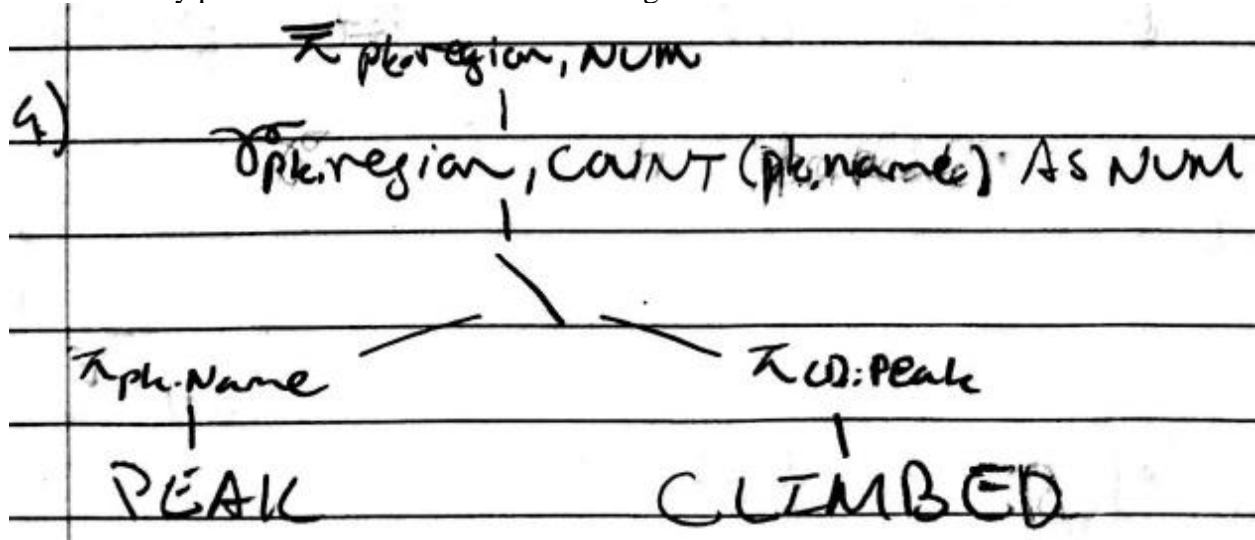 π pk.region, NUM
4)
γ pk.region, COUNT (pk.name) AS NUM
\
π pk.Name π CD.Peak
PEAK CLIMBED